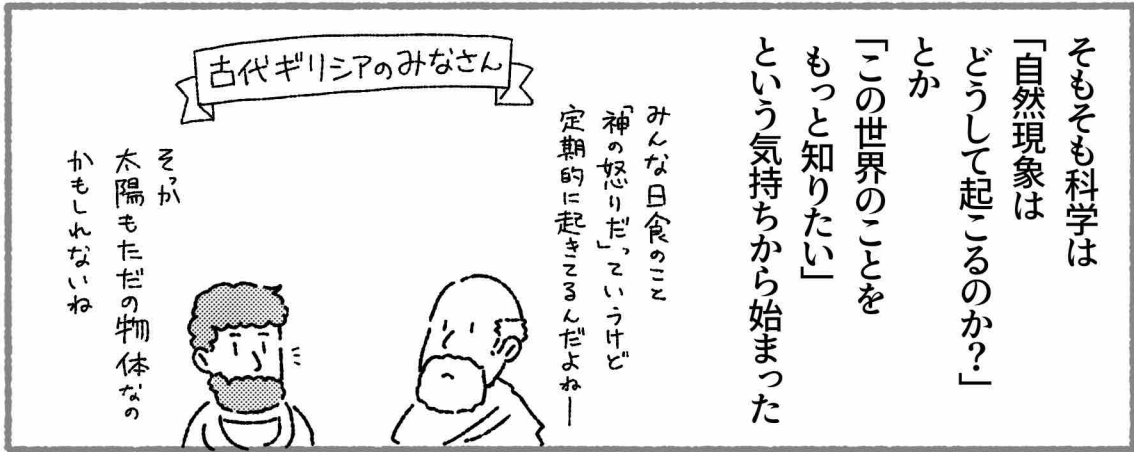 そもそも科学は
「自然現象は
どうして起こるのか?」
とか
「この世界のことを
もっと知りたい」
という気持ちから始まった
古代ギリシアのみなさん
みんな日食のこと
「神の怒りだ」っていうけど
定期的に起きてるんだよねー
そっか
太陽もただの物体なの
かもしれないね